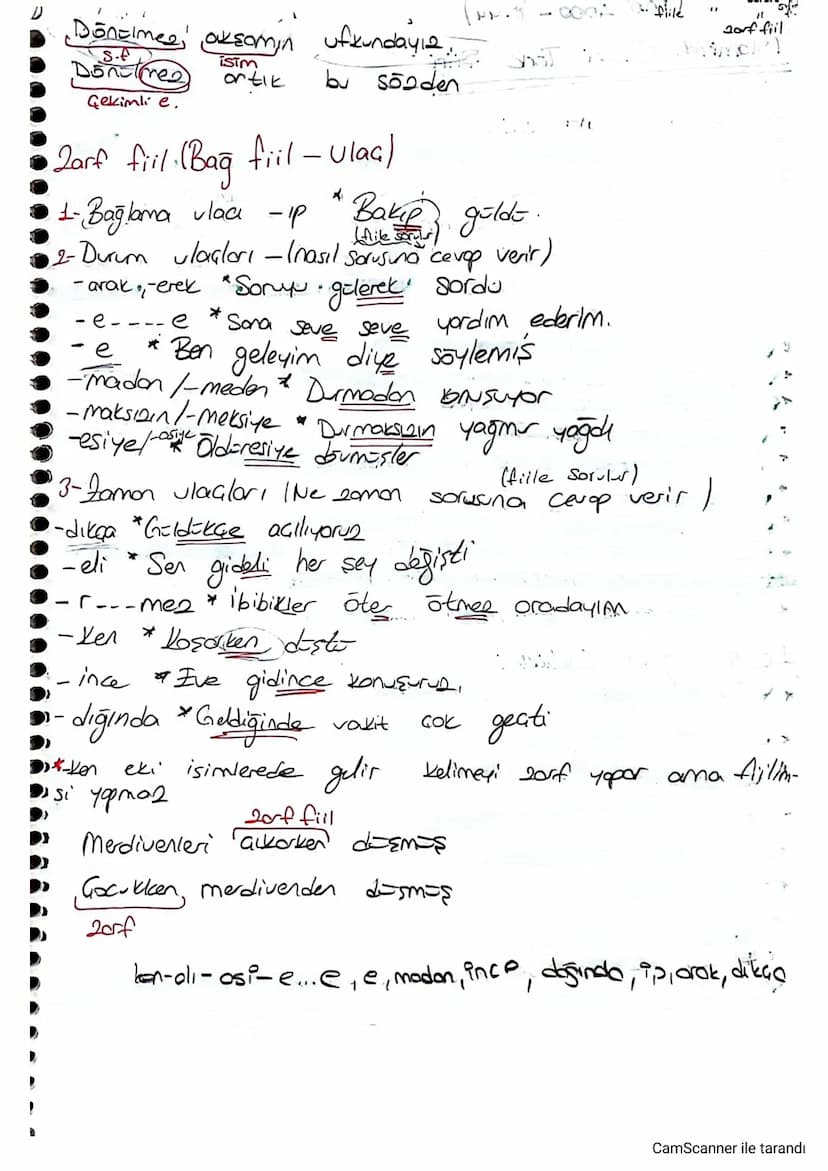 fiile " " S.f
zarf fiil
Dönülmez akşamın ufkundayız.
S.f isim
Dönülmez artık bu sözden
Çekimli e.
Zarf fiil (Bağ fiil - Ulaç)
1- Bağlama ulacı -ıp * Bakıp güldü.
(fiile sorulur)
2- Durum ulaçları - (nasıl sorusuna cevap verir)
- arak, -erek * Soruyu gülerek sordu
- e----e * Sana seve seve yardım ederim.
- e * Ben geleyim diye söylemiş
- madan /- meden * Durmadan konuşuyor
- maksızın /- meksiye * Durmaksızın yağmur yağdı
- esiye/-asiye * Öldüresiye dövmüşler
(fiile sorulur)
3- Zaman ulaçları (Ne zaman sorusuna cevap verir)
- dıkça * Güldükçe açılıyoruz
- eli * Sen gideli her şey değişti
- r---mez * İbibikler öter ötmez oradayım
- ken * Koşarken düştü
- ince * Eve gidince konuşuruz.
- dığında * Geldiğinde vakit çok geçti
*-ken eki isimlerede gelir kelimeyi zarf yapar ama fiilim-
si yapmaz
zarf fiil
Merdivenleri çıkarken düşmüş
Çocukken, merdivenden düşmüş
zarf
ken-alı-asi-e...e, e, madan, ince, dığında, ip, arak, dıkça
CamScanner ile tarandı